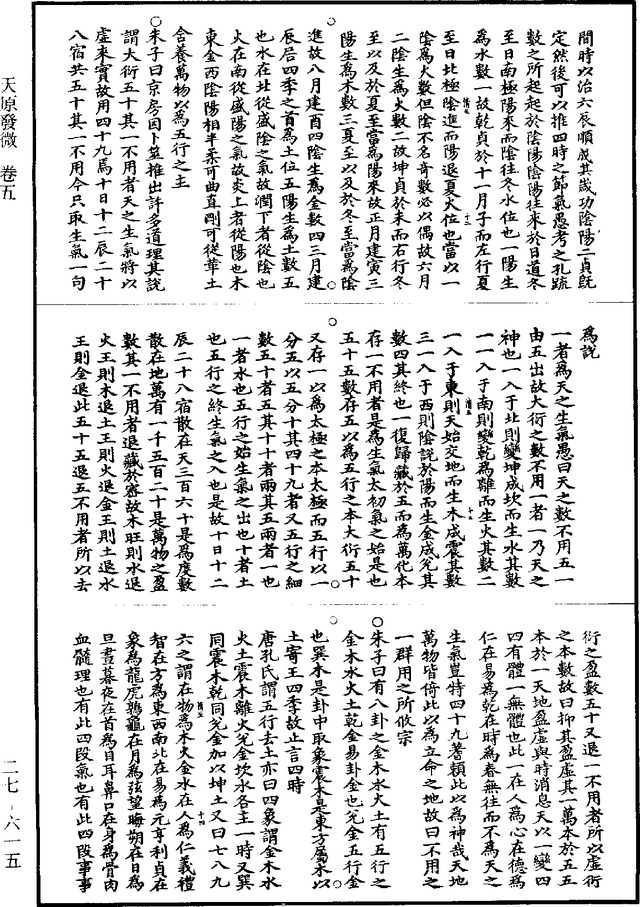 天原發微 卷五
二七-六一五
間時以治六辰順成其歲功陰陽二貞既
定然後可以推四時之節氣愚考之孔䟽
數之所起起於陰陽陰陽往來於日道冬
至日南極陽來而陰往冬水位也一陽生
為水數一故乾貞於十一月子而左行夏
至日北極陰進而陽退夏火位也當以一
陰為火數但陰不名奇數必以偶故六月
二陰生為火數二故坤貞於未而右行冬
至以及於夏至當為陽來故正月建寅三
陽生為木數三夏至以及於冬至當為陰
進故八月建酉四陰生為金數四三月建
辰居四季之首為土位五陽生為土數五
也水在北從盛陰之氣故潤下者從陰也
火在南從盛陽之氣故炎上者從陽也木
東金西陰陽相半柔可曲直剛可從革土
含養萬物以為五行之主
朱子曰京房因卜筮推出許多道理其說
謂大衍五十其一不用者天之生氣將以
虛來實故用四十九焉十日十二辰二十
八宿共五十其一不用今只取生氣一句
為說
一者為天之生氣愚曰天之數不用五一
由五出故大衍之數不用一者一乃天之
神也一入于北則變坤成坎而生水其數
一一入于南則變乾為離而生火其數二
一入于東則天始交地而生木成震其數
三一入于西則陰說於陽而生金成兊其
數四其終也一復歸藏於五而為萬化本
存一不用者是為生氣太初氣之始是也
五十五數存五以為五行之本大衍五十
又存一以為太極之本太極而五行以一
分五以五分十其四十九者又五行之細
數五十者五其十十者兩其五兩者一也
一者水也五行之始生氣之出也十者土
也五行之終生氣之入也是故十日十二
辰二十八宿散在天三百六十是為度數
散在地萬有一千五百二十是萬物之盈
數其一不用者退藏於密故木旺則水退
火王則木退土王則火退金王則土退水
王則金退此五十五退五不用者所以去
衍之盈數五十又退一不用者所以虛衍
之本數故曰抑其盈虛其一萬本於五五
本於一天地盈虛與時消息天以一變四
四有體一無體也此一在人為心在德為
仁在易為乾在時為春無往而不為天之
生氣豈特四十九蓍賴此以為神哉天地
萬物皆倚此以為立命之地故曰不用之
一群用之所攸宗
朱子曰有八卦之金木水火土有五行之
金木水火土乾金易卦金也兊金五行金
也巽木是卦中取象震木是東方屬木以
土寄王四季故止言四時
唐孔氏謂五行去土亦曰四象謂金木水
火土震木離火兊金坎水各主一時又巽
同震木乾同兊金加以坤土又曰七八九
六之謂在物為木火金水在人為仁義禮
智在方為東西南北在易為元亨利貞在
象為龍虎鶉龜在月為弦望晦朔在日為
旦晝暮夜在首為目耳鼻口在身為骨肉
血髓理也有此四段氣也有此四段事事